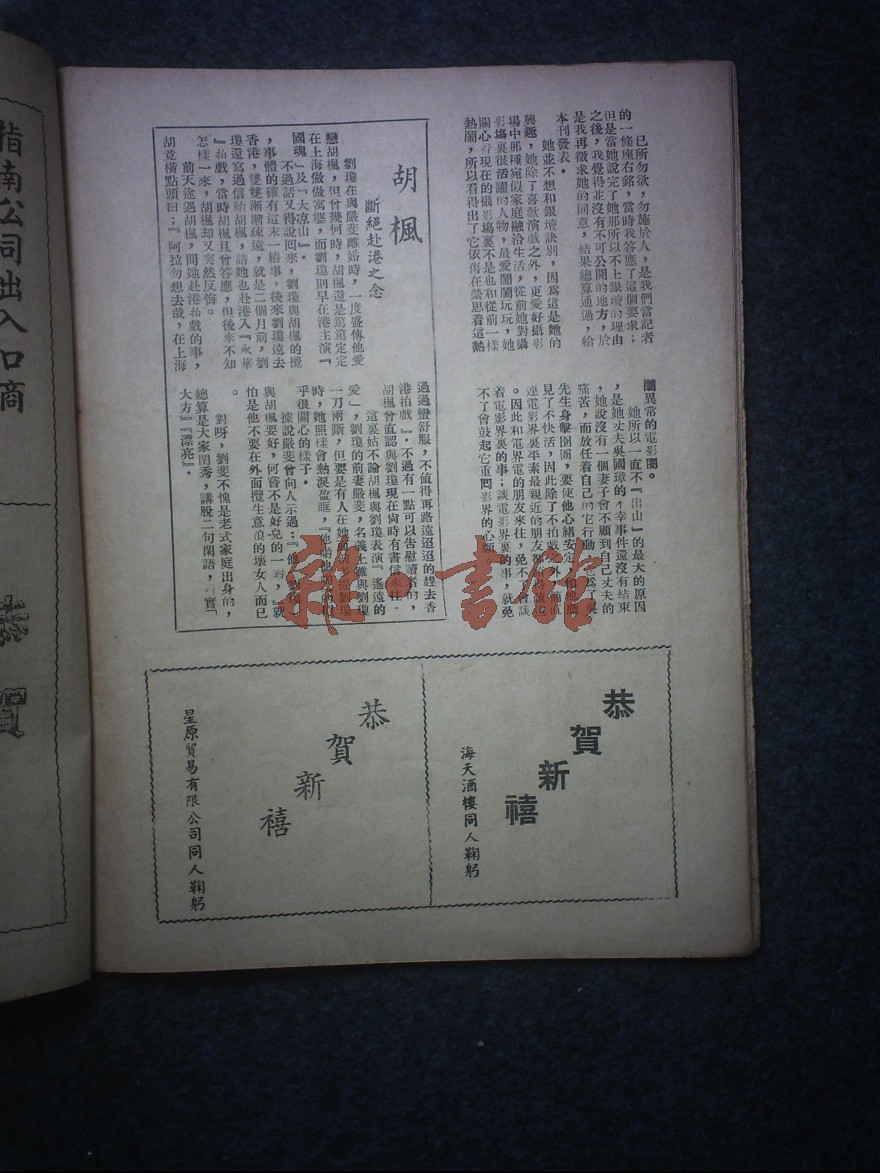 己所勿欲，勿施於人，是我們當記者
的一條座右銘，當時我答應了這個要求；
但是當她說完了她那所以不上銀壇的理由
之後，我覺得並沒有不可公開的地方，於
是我再徵求她的同意，結果總算通過，給
本刊發表。
她並不想和銀壇訣別，因爲這是她的
興趣，她除了喜歡演戲之外，更愛好攝影
場中那種宛似家庭融洽生活，從前她對攝
影塲裏很活躍的人物，最愛鬧鬧玩玩，她
關心着現在的攝影塲裏不是也和從前一樣
熱鬧，所以看得出了它依舊在縈思着這熱
鬧異常的電影圈。
她所以一直不『出山』的最大的原因
，是她丈夫吳國璋的不幸事件還沒有結束
，她說沒有一個妻子會不顧到自己丈夫的
痛苦，而放任着自己的
先生身擊囹圄，要使他心緒安定
見了不快活，因此除了不拍戲
連電影界裏平素最親近的朋友都
。因此和電界電的朋友來往，免不了會談
着電影界裏的事；談電影界裏的事，就免
不了會鼓起它重囘影界的心願
胡楓
斷絕赴港之念
劉瓊在與嚴斐離婚時，一度盛傳他愛
戀胡楓，但曾幾何時，胡楓還是篤篤定定
在上海做做寓婆，而劉瓊則早在港主演『
國魂』及『大凉山』。
不過話又得說囘來，劉瓊與胡楓的攪
，事體的確有這末一樁事，後來劉瓊遠去
香港，雙雙漸漸疎遠，就是二個月前，劉
瓊還寫過信給胡楓，請她也赴港入『永華
』拍戲，當時胡楓且曾答應，但後來不知
怎樣一來，胡楓却又突然反悔。
前天途遇胡楓，問她赴港拍戲的事，
胡竟橫點頭曰：『阿拉勿想去哉，在上海
過過蠻舒服，不值得再路遠迢迢的趕去香
港拍戲』。不過有一點可以告慰讀者的，
胡楓曾直認與劉瓊現在尙時有書信來往。
這裏姑不論胡楓與劉瓊表演『遙遠的
愛」，劉瓊的前妻嚴斐，名義上雖與劉瓊
一刀兩斷，但要是有人在她
時，她照樣會熱淚盈眶，
乎很關心的樣子。
據說嚴斐曾向人示過：『他
與胡楓要好，何嘗不是好兒的一對，
怕是他不要在外面攬生意浪的壞女人而已
。
對呀，劉斐不愧是老式家庭出身的，
總算是大家閨秀，講脫二句閑語，
大方』『漂亮』。
恭賀新禧
海天酒樓同人鞠躬
恭賀新禧
星原貿易有限公司同人鞠躬
指南公司出入口商
恭賀
書館